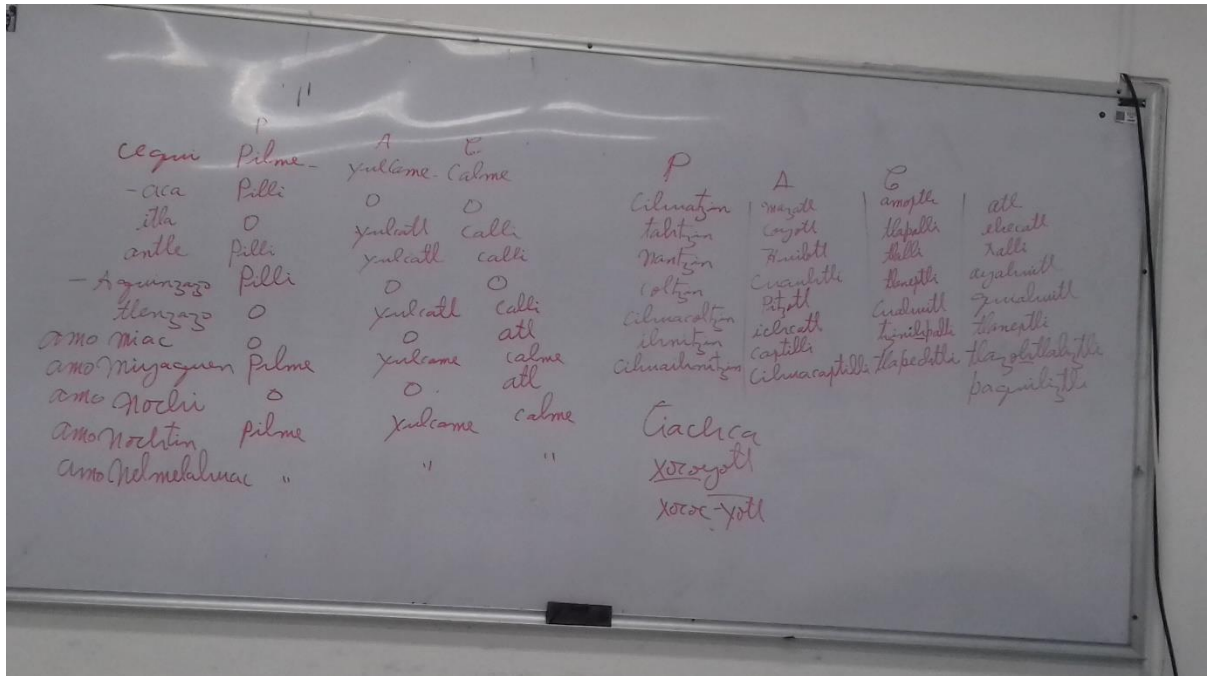 P A C
cequi Pilme- yulcame- Calme
- aca Pilli O O
itla O yulcatl calli
antle Pilli yulcatl calli
- Aquinzazo Pilli O O
tlenzazo O yulcatl calli
amo miac O O atl
amo Miyaquen Pilme yulcame calme
amo Nochi O O. atl
amo Nochtin pilme yulcame calme
amo Nelmelahuac " " "
P A C
cihuatzin mazatl amoxtli atl
tahtzin coyotl tlapalli ehecatl
Nantzin Huilotl tlalli xalli
coltzin Cuauhtli tlanextli ayahuitl
cihuacoltzin Pitzotl Cuahuitl quiahuitl
ihnitzin ichcatl tzinilpalli tlanextli
cihuaihnitzin caxtilli tlapechtli tlazohtlaliztli
cihuacaxtilli paquiliztli
Tiachca
xocoyotl
xococ-yotl